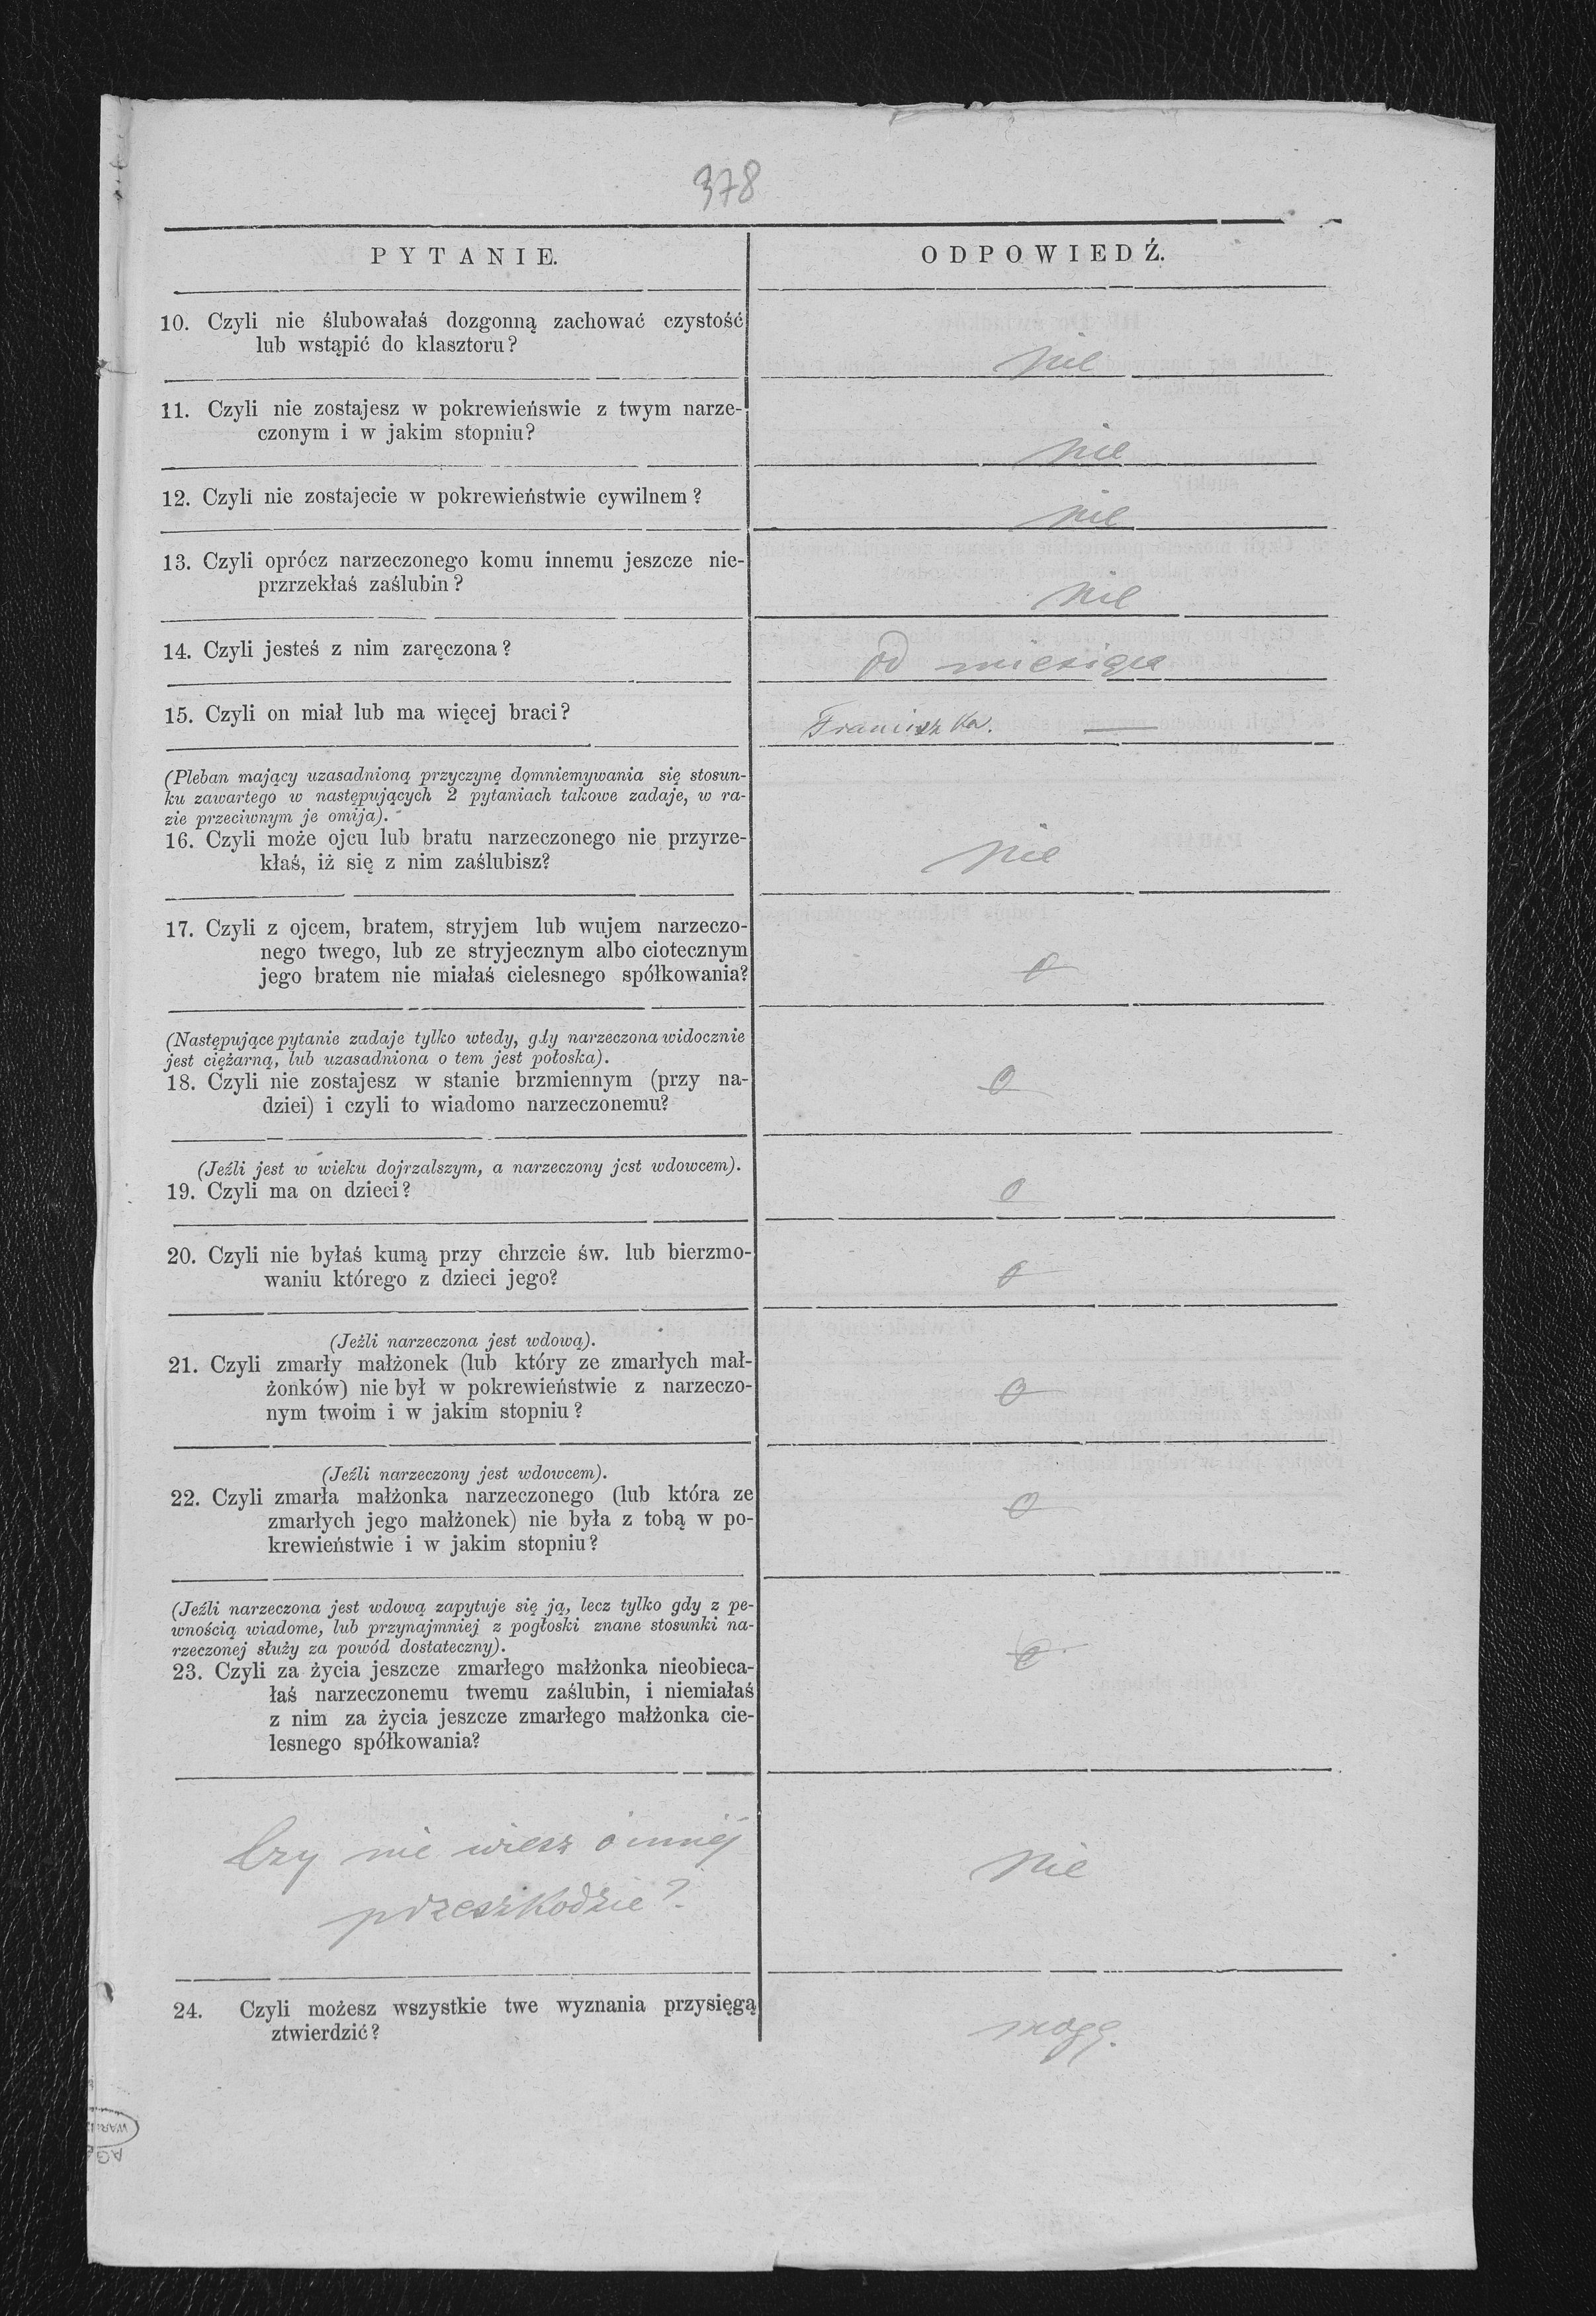 378
PYTANIE.
ODPOWIEDŹ.
10. Czyli nie ślubowałaś dozgonną zachować czystość
lub wstąpić do klasztoru?
nie
11. Czyli nie zostajesz w pokrewieńswie z twym narze-
czonym i w jakim stopniu?
nie
12. Czyli nie zostajecie w pokrewieństwie cywilnem?
nie
13. Czyli oprócz narzeczonego komu innemu jeszcze nie-
przrzekłaś zaślubin?
nie
14. Czyli jesteś z nim zaręczona?
od miesiąca
15. Czyli on miał lub ma więcej braci?
Franciszka. —
(Pleban mający uzasadnioną przyczynę domniemywania się stosun-
ku zawartego w następujących 2 pytaniach takowe zadaje, w ra-
zie przeciwnym je omija).
16. Czyli może ojcu lub bratu narzeczonego nie przyrze-
kłaś, iż się z nim zaślubisz?
nie
17. Czyli z ojcem, bratem, stryjem lub wujem narzeczo-
nego twego, lub ze stryjecznym albo ciotecznym
jego bratem nie miałaś cielesnego spółkowania?
0
(Następujące pytanie zadaje tylko wtedy, gdy narzeczona widocznie
jest ciężarną, lub uzasadniona o tem jest połoska).
18. Czyli nie zostajesz w stanie brzmiennym (przy na-
dziei) i czyli to wiadomo narzeczonemu?
0
(Jeźli jest w wieku dojrzalszym, a narzeczony jest wdowcem).
19. Czyli ma on dzieci?
0
20. Czyli nie byłaś kumą przy chrzcie św. lub bierzmo-
waniu którego z dzieci jego?
0
(Jeżli narzeczona jest wdową).
21. Czyli zmarły małżonek (lub który ze zmarłych mał-
żonków) nie był w pokrewieństwie z narzeczo-
nym twoim i w jakim stopniu?
0
(Jeźli narzeczony jest wdowcem).
22. Czyli zmarła małżonka narzeczonego (lub która ze
zmarłych jego małżonek) nie była z tobą w po-
krewieństwie i w jakim stopniu?
0
(Jeźli narzeczona jest wdową zapytuje się ją, lecz tylko gdy z pe-
wnością wiadome, lub przynajmniej z pogłoski znane stosunki na-
rzeczonej służy za powód dostateczny).
23. Czyli za życia jeszcze zmarłego małżonka nieobieca-
łaś narzeczonemu twemu zaślubin, i niemiałaś
z nim za życia jeszcze zmarłego małżonka cie-
lesnego spółkowania?
0
Czy nie wiesz o innéj
przeszkodzie?
nie
24. Czyli możesz wszystkie twe wyznania przysięgą
ztwierdzić?
mogę.